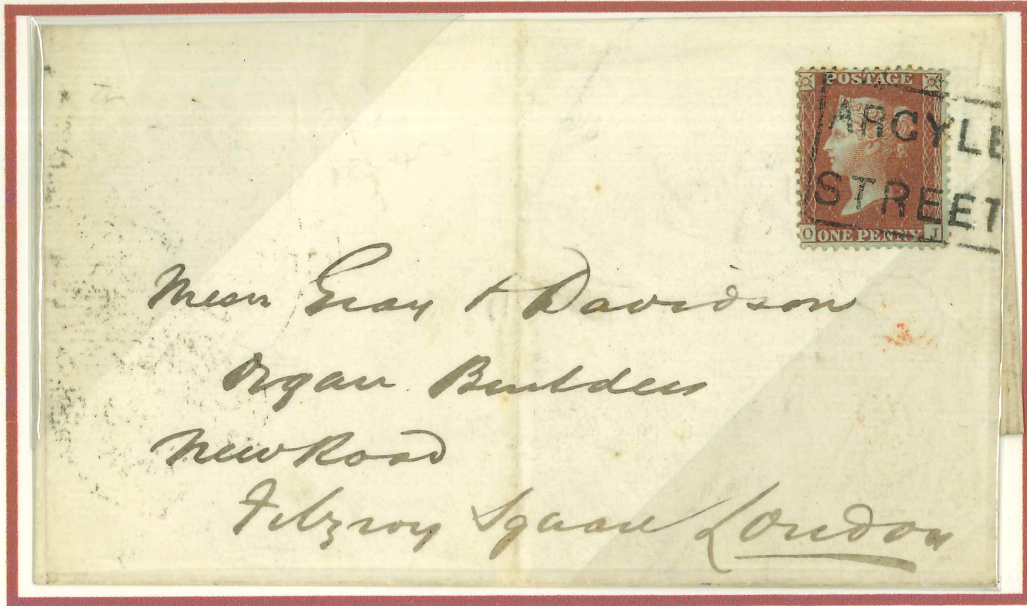 POSTAGE
ARGYLE
STREET
O ONE PENNY J
Messrs Gray & Davidson
Organ Builders
New Road
Fitzroy Square London